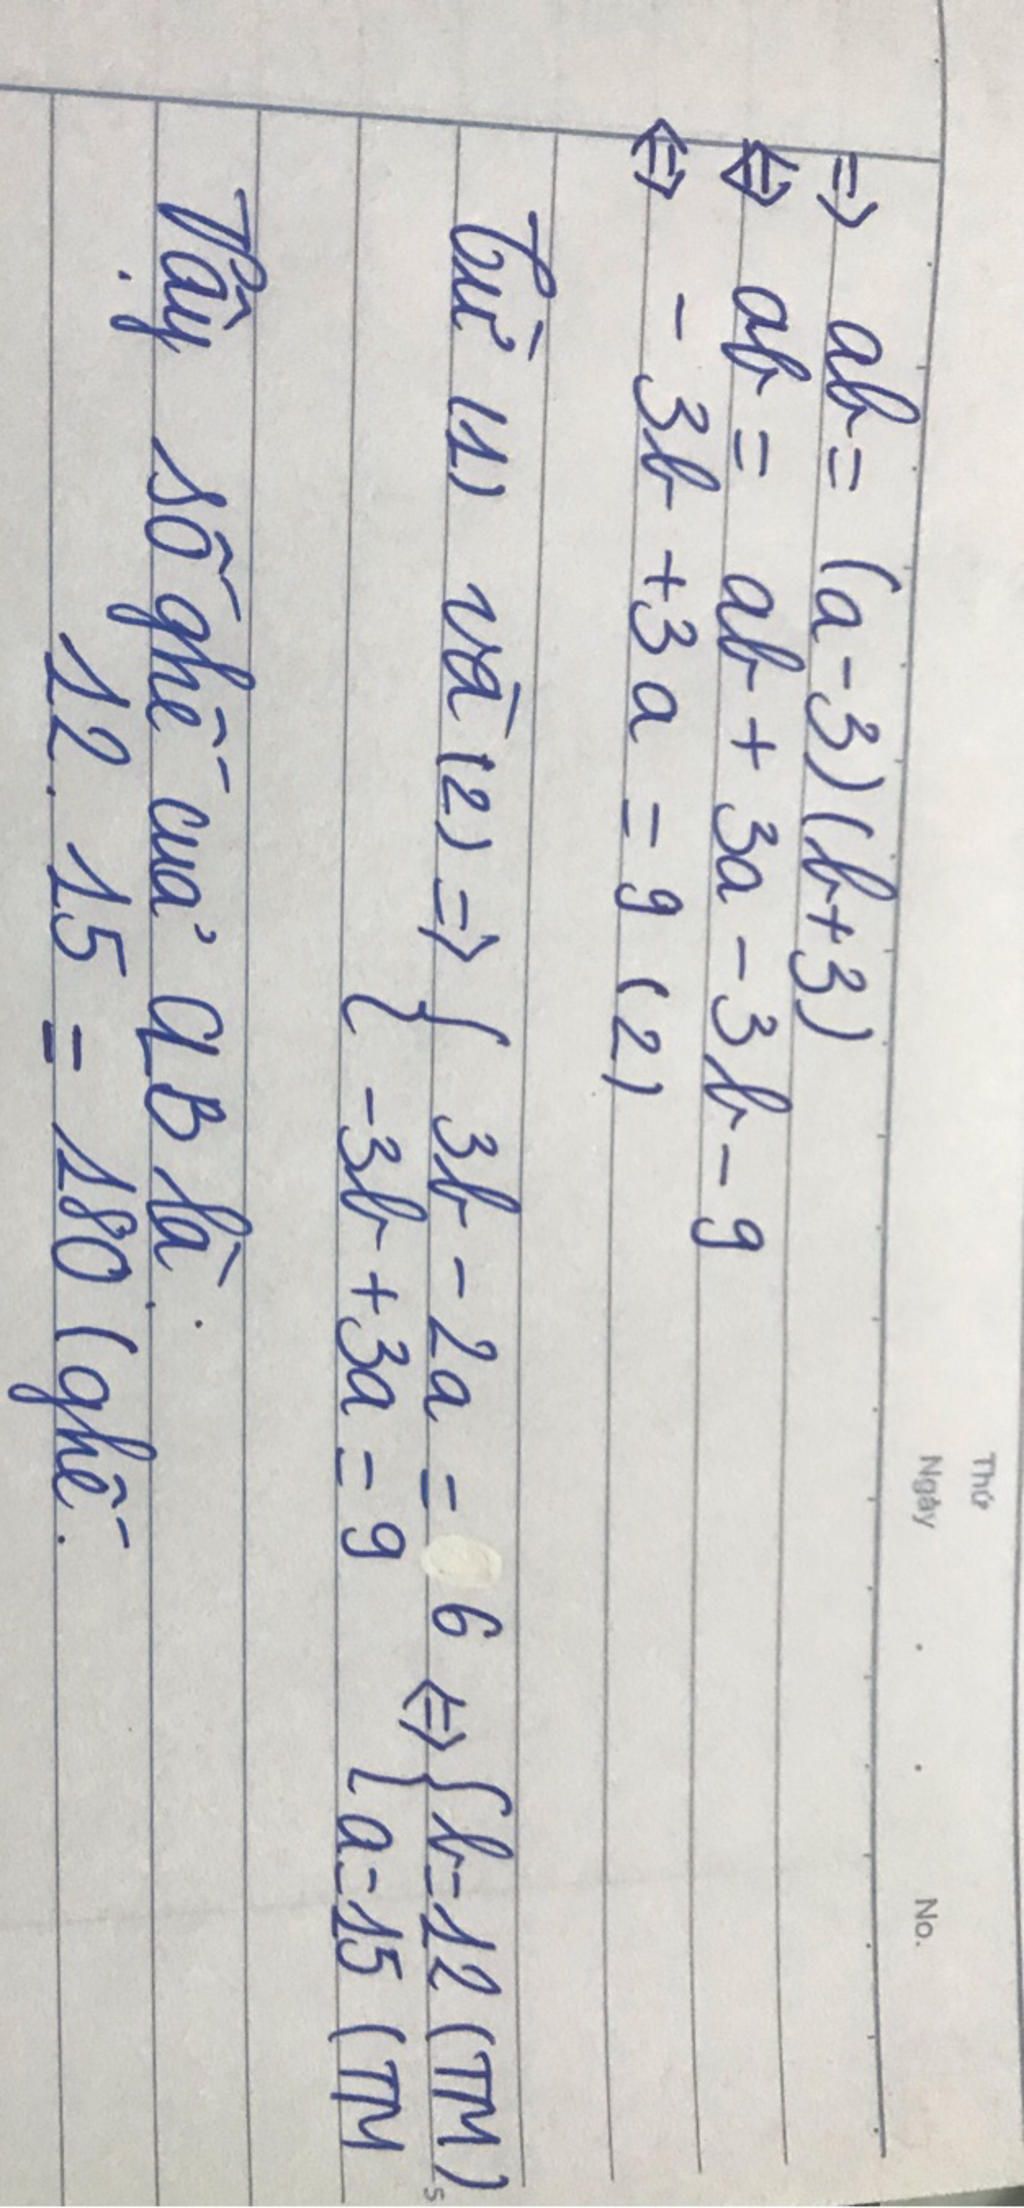 Thứ
Ngày . . No.
=> ab = (a-3)(b+3)
<=> ab = ab + 3a - 3b - 9
<=> - 3b + 3a = 9 (2)
Từ (1) và (2) => { 3b - 2a = 6 <=> { b = 12 (TM)
{ -3b + 3a = 9 { a = 15 (TM
Vậy số ghế của CLB là:
12. 15 = 180 (ghế.